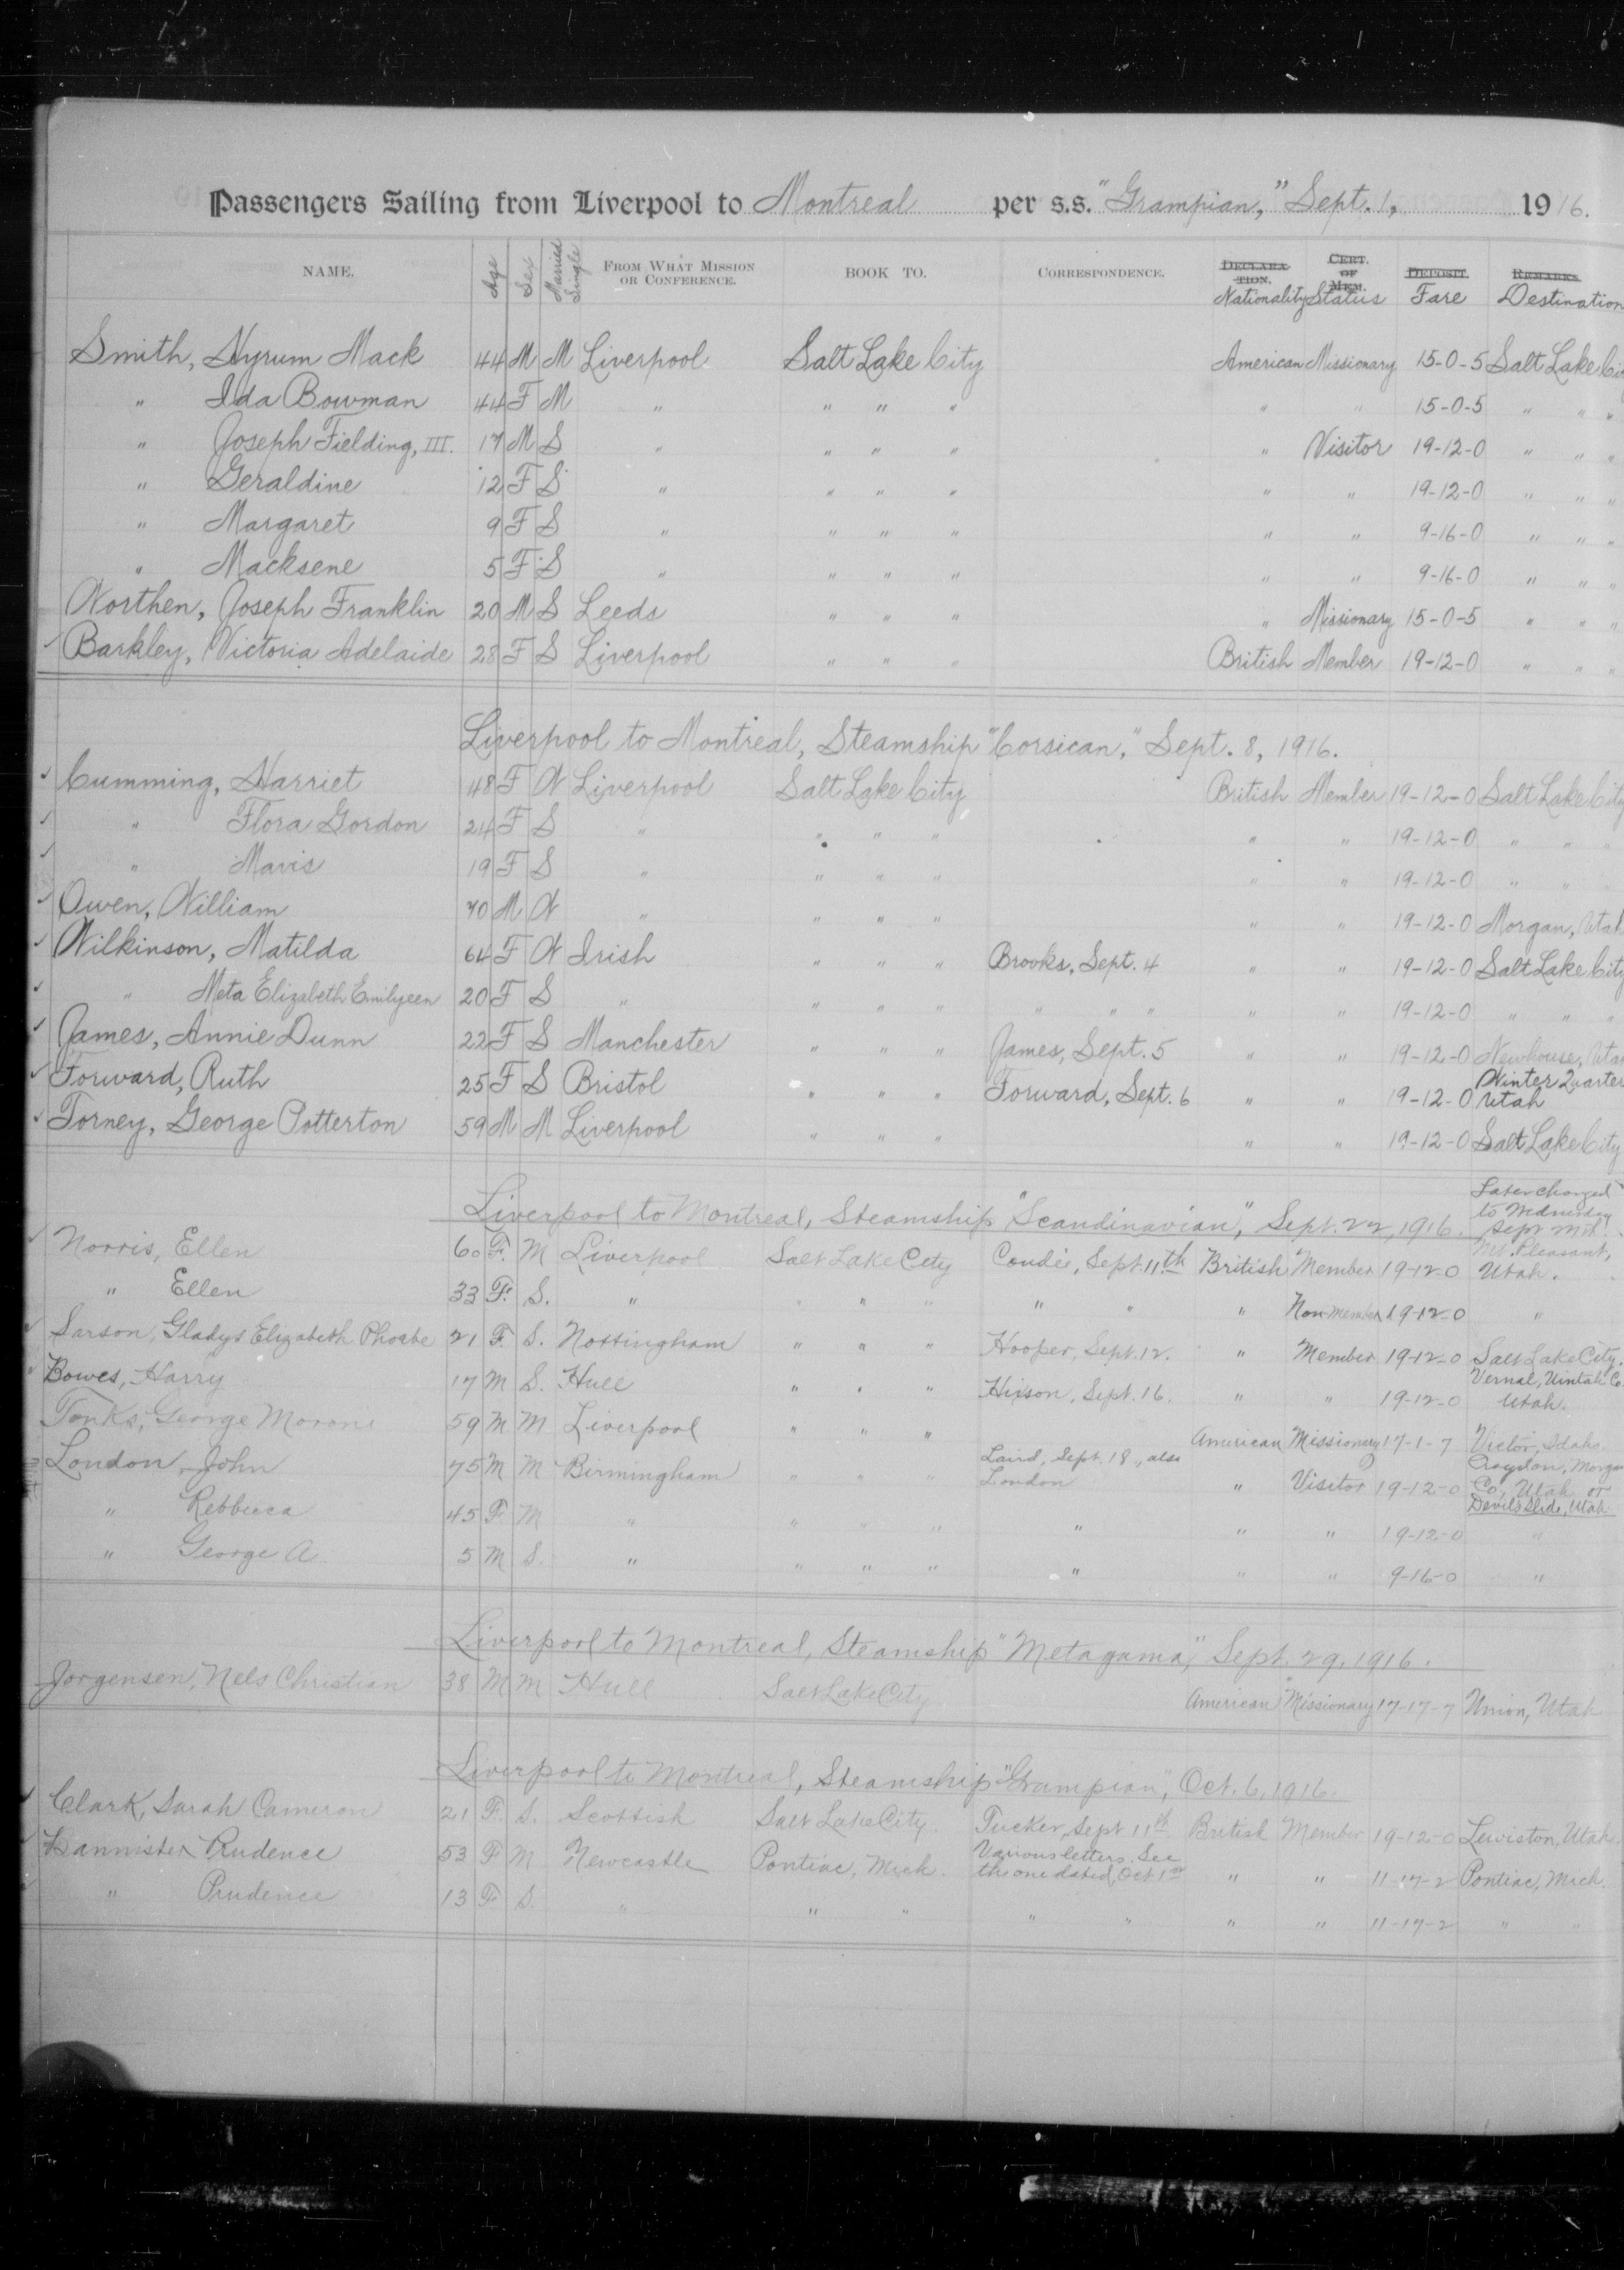 Passengers Sailing from Liverpool to Montreal per s.s. "Grampian," Sept. 1, 1916.
NAME. Age Sex Married Single FROM WHAT MISSION OR CONFERENCE. BOOK TO. CORRESPONDENCE. DECLARATION. Nationality CERT. OF MEM. Status DEPOSIT. Fare REMARKS. Destination
Smith, Hyrum Mack 44 M M Liverpool Salt Lake City American Missionary 15-0-5 Salt Lake Cit
" Ida Bowman 44 F M " " " " " " 15-0-5 " " "
" Joseph Fielding, III. 17 M S " " " " " Visitor 19-12-0 " " "
" Geraldine 12 F S " " " " " " 19-12-0 " " "
" Margaret 9 F S " " " " " " 9-16-0 " " "
" Macksene 5 F S " " " " " " 9-16-0 " " "
Worthen, Joseph Franklin 20 M S Leeds " " " " Missionary 15-0-5 " " "
✓ Barkley, Victoria Adelaide 28 F S Liverpool " " " British Member 19-12-0 " " "
Liverpool to Montreal, Steamship "Corsican," Sept. 8, 1916.
✓ Cumming, Harriet 48 F W Liverpool Salt Lake City British Member 19-12-0 Salt Lake City
✓ " Flora Gordon 24 F S " " " " " " 19-12-0 " " "
✓ " Mavis 19 F S " " " " " " 19-12-0 " " "
✓ Owen, William 70 M W " " " " " " 19-12-0 Morgan, Utah
✓ Wilkinson, Matilda 64 F W Irish " " " Brooks, Sept. 4 " " 19-12-0 Salt Lake City
✓ " Meta Elizabeth Emilyeen 20 F S " " " " " " " " " 19-12-0 " " "
✓ James, Annie Dunn 22 F S Manchester " " " James, Sept. 5 " " 19-12-0 Newhouse, Utah
✓ Forward, Ruth 25 F S Bristol " " " Forward, Sept. 6 " " 19-12-0 Winter Quarter Utah
✓ Torney, George Potterton 59 M M Liverpool " " " " " 19-12-0 Salt Lake City
Liverpool to Montreal, Steamship "Scandinavian", Sept. 22, 1916. Later changed to Wednesday Sept
✓ Norris, Ellen 60 F. M Liverpool Salt Lake City Condie, Sept. 11th British Member 19-12-0 Mt. Pleasant, Utah.
" Ellen 33 F. S. " " " " " " " Non-member 19-12-0 "
✓ Sarson, Gladys Elizabeth Phoebe 21 F. S. Nottingham " " " Hooper, Sept. 12. " Member 19-12-0 Salt Lake City.
Bowes, Harry 17 M S. Hull " " " Hixson, Sept. 16. " " 19-12-0 Vernal, Uintah Co. Utah.
Tonks, George Moroni 59 M M Liverpool " " " American Missionary 17-1-7 Victor, Idaho.
London, John 75 M M Birmingham " " " Laird, Sept. 18, also London " Visitor 19-12-0 Croydon, Morgan Co., Utah or Devil's Slide, Utah
" Rebbecca 45 F M " " " " " " " 19-12-0 "
" George A. 5 M S. " " " " " " " 9-16-0 "
Liverpool to Montreal, Steamship "Metagama," Sept. 29, 1916.
Jorgensen, Nels Christian 38 M M Hull Salt Lake City American Missionary 17-17-7 Union, Utah
Liverpool to Montreal, Steamship "Grampian", Oct. 6, 1916.
✓ Clark, Sarah Cameron 21 F. S. Scottish Salt Lake City. Tucker, Sept 11th British Member 19-12-0 Lewiston, Utah.
✓ Bannister Prudence 53 F M Newcastle Pontiac, Mich. Various letters. See the one dated, Oct 1st " " 11-17-2 Pontiac, Mich.
" Prudence 13 F S. " " " " " " " 11-17-2 " "